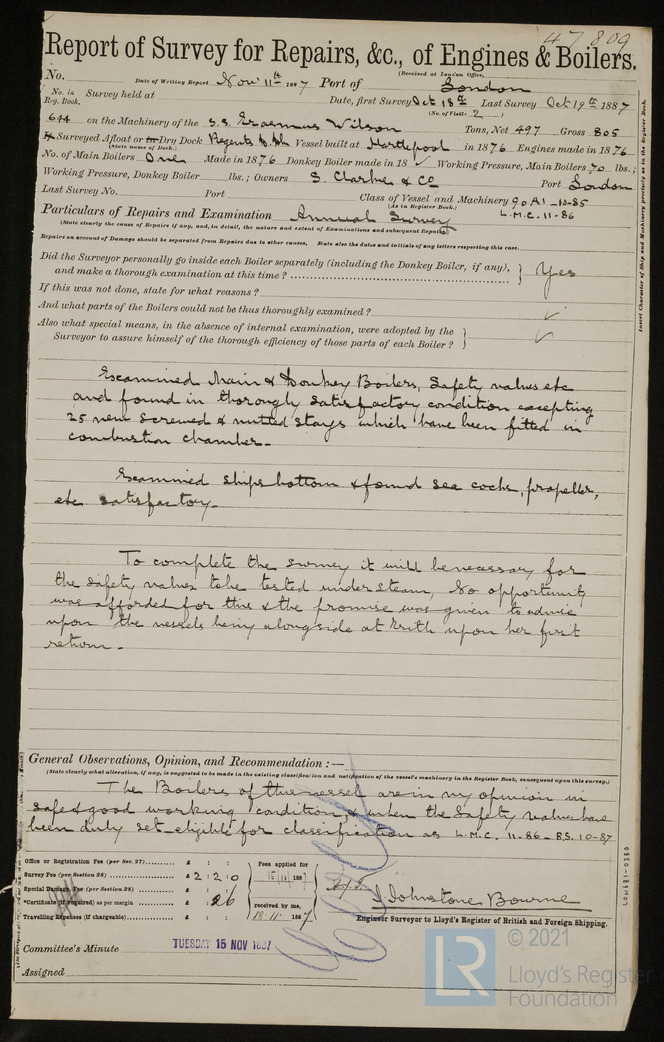 47809
Report of Survey for Repairs, &c., of Engines & Boilers.
(Received at London Office,
No. Date of Writing Report Nov 11th 1887 Port of London
No. in Reg. Book. Survey held at Date, first Survey Oct 18th Last Survey Oct 19th 1887
(No. of Visits 2 )
644 on the Machinery of the S.S. Erasmus Wilson Tons, Net 497 Gross 805
Surveyed Afloat or in Dry Dock Regents Vessel built at Hartlepool in 1876 Engines made in 1876
(State name of Dock.)
No. of Main Boilers One Made in 1876 Donkey Boiler made in 18 ✓ Working Pressure, Main Boilers 70 lbs.;
Working Pressure, Donkey Boiler lbs.; Owners S. Clarke & Co Port London
Last Survey No. Port Class of Vessel and Machinery 90A1-10-85
(As in Register Book.)
Particulars of Repairs and Examination Annual Survey L.M.C. 11-86
(State clearly the cause of Repairs if any, and, in detail, the nature and extent of Examinations and subsequent Repairs)
Repairs on account of Damage should be separated from Repairs due to other causes. State also the dates and initials of any letters respecting this case.
Did the Surveyor personally go inside each Boiler separately (including the Donkey Boiler, if any),
and make a thorough examination at this time? } Yes
If this was not done, state for what reasons?
And what parts of the Boilers could not be thus thoroughly examined? ✓
Also what special means, in the absence of internal examination, were adopted by the
Surveyor to assure himself of the thorough efficiency of those parts of each Boiler? } ✓
Insert Character of Ship and Machinery precisely as in the Register Book.
Examined Main & Donkey Boilers, Safety valves etc
and found in thorougly satisfactory condition excepting
25 new screwed & nutted stays which have been fitted in
combustion chamber.
Examined ships bottom & found sea cocks, propeller,
etc satisfactory.
To complete the survey it will be necessary for
the safety valves to be tested under steam, No opportunity
was afforded for this & the promise was given to advise
upon the vessels being alongside at Erith upon her first
return.
General Observations, Opinion, and Recommendation :—
(State clearly what alteration, if any, is suggested to be made in the existing classification and notification of the vessel's machinery in the Register Book, consequent upon this survey.)
The Boilers of this vessel are in my opinion in
safe & good working condition, & when the Safety valves have
been duly set eligible for classification as L.M.C. 11-86 - B.S. 10-87
Office or Registration Fee (per Sec. 27) £ : :
Survey Fee (per Section 28) £ 2 : 2 : 0
Special Damage Fee (per Section 28) £ : :
*Certificate (if required) as per margin £ : 2/6
Travelling Expenses (if chargeable) £ : :
Fees applied for
15/11/1887
received by me,
18.11.1887
J Johnstone Bourne
Engineer Surveyor to Lloyd's Register of British and Foreign Shipping.
Committee's Minute TUESDAY 15 NOV 1887
Assigned
LON491-0380
© 2021
LR
Lloyd's Register
Foundation